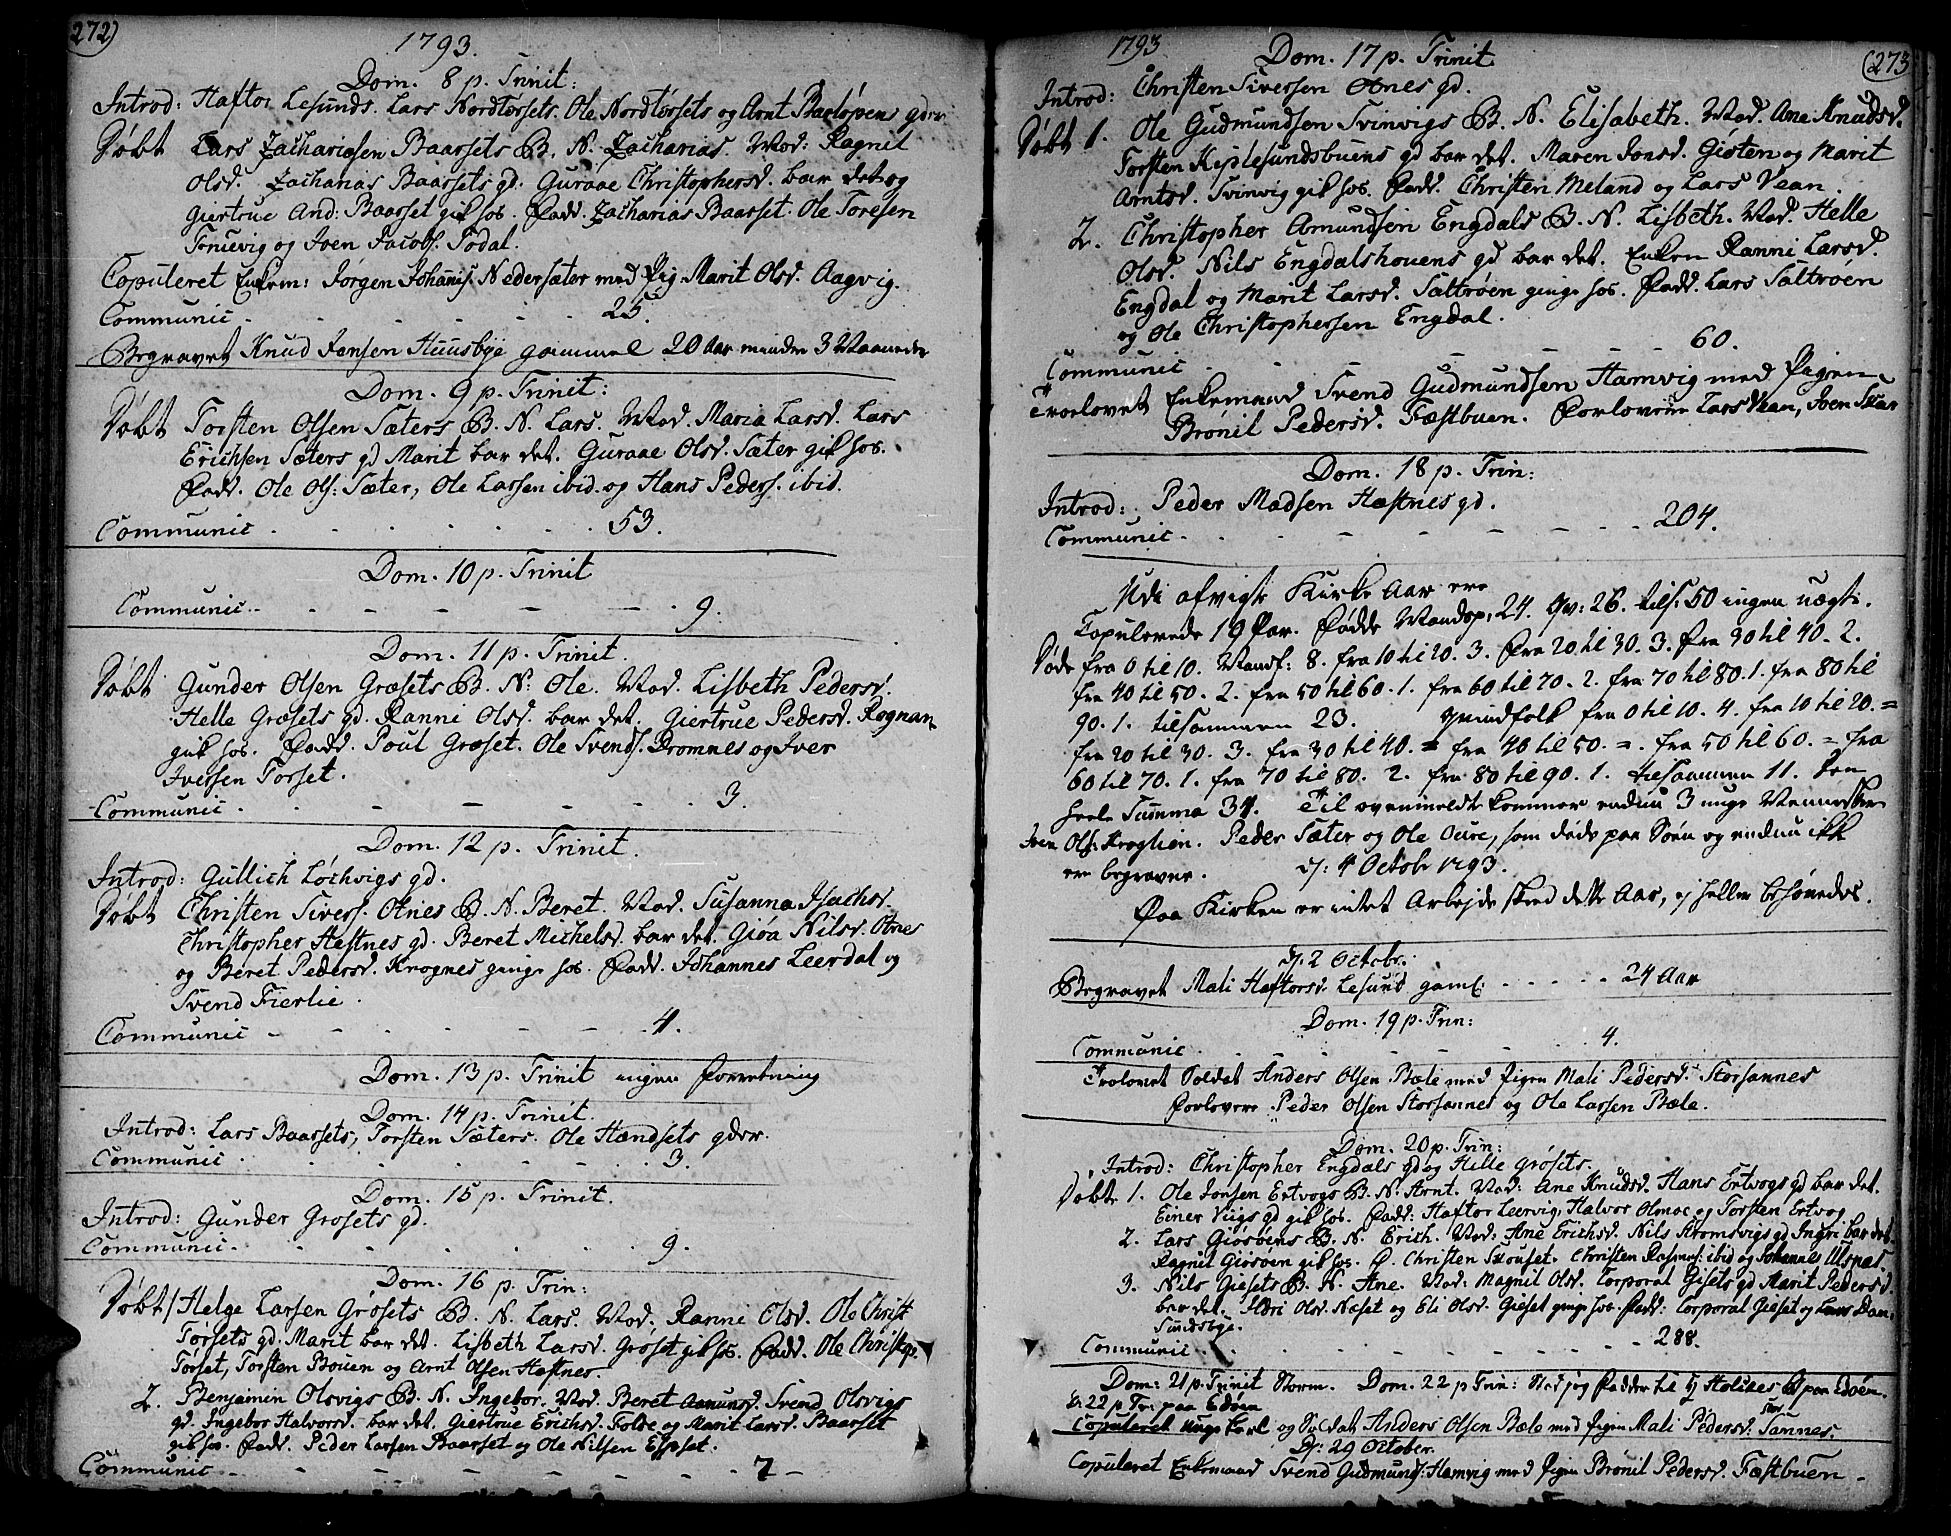 272
1793.
Dom. 8 p. Trinit:
Introd: Haftor Lesunds. Lars Nordtørsets. Ole Nordtørsets og Arnt Barløpens gdr
Døbt Lars Zachariasen Baarsets B. N. Zacharias. Mod: Ragnil
Olsd. Zacharias Baarsets gd. Guraae Christophersd. bar det og
Giertrue And: Baarset gik hos. Fadd. Zacharias Baarset. Ole Toresen
og Joen Jacobs. Todal.
Copuleret Enkem: Jørgen Johannis. Nedersæter med Pig. Marit Olsd. Aagvig.
Communic - - - - - 25.
Begravet Knud Jensen Huusbye gammel 20 Aar mindre 3 Maaneder
Dom. 9 p. Trinit:
Døbt Torsten Olsen Sæters B. N. Lars. Mod. Maria Larsd. Lars
Erichsen Sæters gd Marit bar det. Guraae Olsd. Sæter gik hos.
Fadd. Ole Ols: Sæter, Ole Larsen ibid. og Hans Peders. ibid.
Communic - - - - - 53.
Dom. 10 p. Trinit
Communic - - - - - 9.
Dom. 11 p. Trinit.
Døbt Gunder Olsen Grøsets B. N: Ole. Mod. Lisbeth Pedersd.
Helle Grøsets gd. Ranni Olsd. bar det. Giertrue Pedersd. Rognan
gik hos. Fadd. Poul Grøset. Ole Svends. Bromnes og Iver
Iversen Torset.
Communic - - - - - 3.
Dom. 12 p. Trinit.
Introd: Gullich Løchvigs gd.
Døbt Christen Sivers. Otnes B. N. Beret. Mod. Susanna Isachsd.
Christopher Hæstnes gd. Beret Michelsd. bar det. Giøa Nilsd. Otnes
og Beret Pedersd. Krognes ginge hos. Fadd. Johannes Leerdal og
Svend Fierlie.
Communic - - - - - 4.
Dom. 13 p. Trinit ingen Forretning
Dom. 14 p. Trinit.
Introd: Lars Baarsets, Torsten Sæters. Ole Hændsets gdr.
Communic - - - - - 3.
Dom. 15 p. Trinit.
Introd: Gunder Grosets gd.
Communic - - - - - 9.
Dom. 16 p. Trin:
Døbt 1 Helge Larsen Grøsets B. N. Lars. Mod. Ranni Olsd. Ole Christ
Tørsets gd. Marit bar det. Lisbeth Larsd. Grøset gik hos. Fadd. Ole Christop.
Torset, Torsten Bouen og Arnt Olsen Hæstnes.
2. Benjamin Olsvigs B. N. Ingebor. Mod. Beret Amunds. Svend Olsvigs
gd. Ingebor Halvorsd. bar det. Giertrue Erichsd. Tolde og Marit Larsd. Baarset
gik hos. Fadd. Peder Larsen Baarset og Ole Nilsen Espset.
Communic - - - - - 7 -
1793
273
Dom. 17 p. Trinit.
Introd: Christen Siversen Otnes gd.
Døbt 1. Ole Gudmundsen Svinvigs B. N. Elisabeth. Mod. Ane Knudsd.
Torsten Kiplesundsbuens gd bar det. Maren Jonsd. Giøsten og Marit
Arntsd. Svinvig gik hos. Fadd. Christen Meland og Lars Vean.
2. Christopher Amundsen Engdals B. N. Lisbeth. Mod. Helle
Olsd. Nils Engdalshouens gd bar det. Enken Ranni Larsd.
Engdal og Marit Larsd. Saltrøen ginge hos. Fadd. Lars Saltrøen
og Ole Christophersen Engdal.
Communic - - - - - 60.
Trolovet Enkemand Svend Gudmundsen Hamvig med Pigen
Brønil Pedersd. Fæstbuen. Forlovere Lars Vean, Joen Skar
Dom. 18 p. Trin:
Introd: Peder Madsen Hæstnes gd.
Communic - - - - - 204.
Udi afvigte Kirke Aar ere
Copulerede 19 Par. Fødde Mandsp: 24. Qv: 26. tils: 50 ingen uægte.
Døde fra 0 til 10. Mandk: 8. fra 10 til 20. 3. Fra 20 til 30. 3. Fra 30 til 40. 2.
fra 40 til 50. 2. fra 50 til 60. 1. fra 60 til 70. 2. fra 70 til 80. 1. fra 80 til
90. 1. tilsammen 23. Qvindfolk fra 0 til 10. 4. fra 10 til 20. =
fra 20 til 30. 3. fra 30 til 40. = fra 40 til 50. =. fra 50 til 60. = fra
60 til 70. 1. fra 70 til 80. 2. fra 80 til 90. 1. tilsammen 11. Den
heele Summa 34. Til ovenmeldte kommer endnu 3 unge Mennisker
Iver Ols: Kroglien. Peder Sæter og Ole Oure, som døde paa Søen og endnu ikke
ere begravne. d: 4 Octobr 1793.
Paa Kirken er intet Arbejde skeed dette Aar, ej heller behøvedes.
d: 2 Octobr.
Begravet Mali Haftorsd. Lesund gaml: - - - - 24 Aar
Dom. 19 p. Trin:
Communic - - - - - 4.
Trolovet Soldat Anders Olsen Bæle med Pigen Mali Pedersd. Storsannes
Forlovere: Peder Olsen Storsannes og Ole Larsen Bæle.
Dom. 20 p. Trin:
Introd: Christopher Engdals gd og Helle Grøsets.
Døbt 1. Ole Jonsen Ertvogs B. N. Arnt. Mod: Ane Knudsd. Hans Ertvogs gd bar det.
Einer Viigs gd gik hos. Fadd: Haftor Leervig, Halvor Olmoe og Torsten Ertvog
2. Lars Giøsøens B. N. Erich. Mod: Ane Erichsd. Nils Stromsvigs gd Ingri bar det.
Ragnil Giøsøen gik hos. F. Christen Skouset. Christen Rasmus: ibid og Johannes Ulsnes.
3. Nils Giesets B. N. Ane. Mod: Magnil Olsd. Corporal Gisets gd Marit Pedersd.
bar det. Olsd. Næset og Eli Olsd. Gieset ginge hos. Fadd: Corporal Gieset og Lars
Sundsbye.
Communic - - - - - 288.
Dom: 21 p. Trinit Storm. Dom. 22 p Trin: paa Edøen.
D: 22 p Tr: paa Edøen
Copuleret unge Karl og Soldat Anders Olsen Bæle med Pigen Mali Pedersd: Stor Sannes.
D: 29 October.
Copuleret Enkemand Svend Gudmunds: Hamvig med Pigen Brønil Pedersd. Fæstbuen -